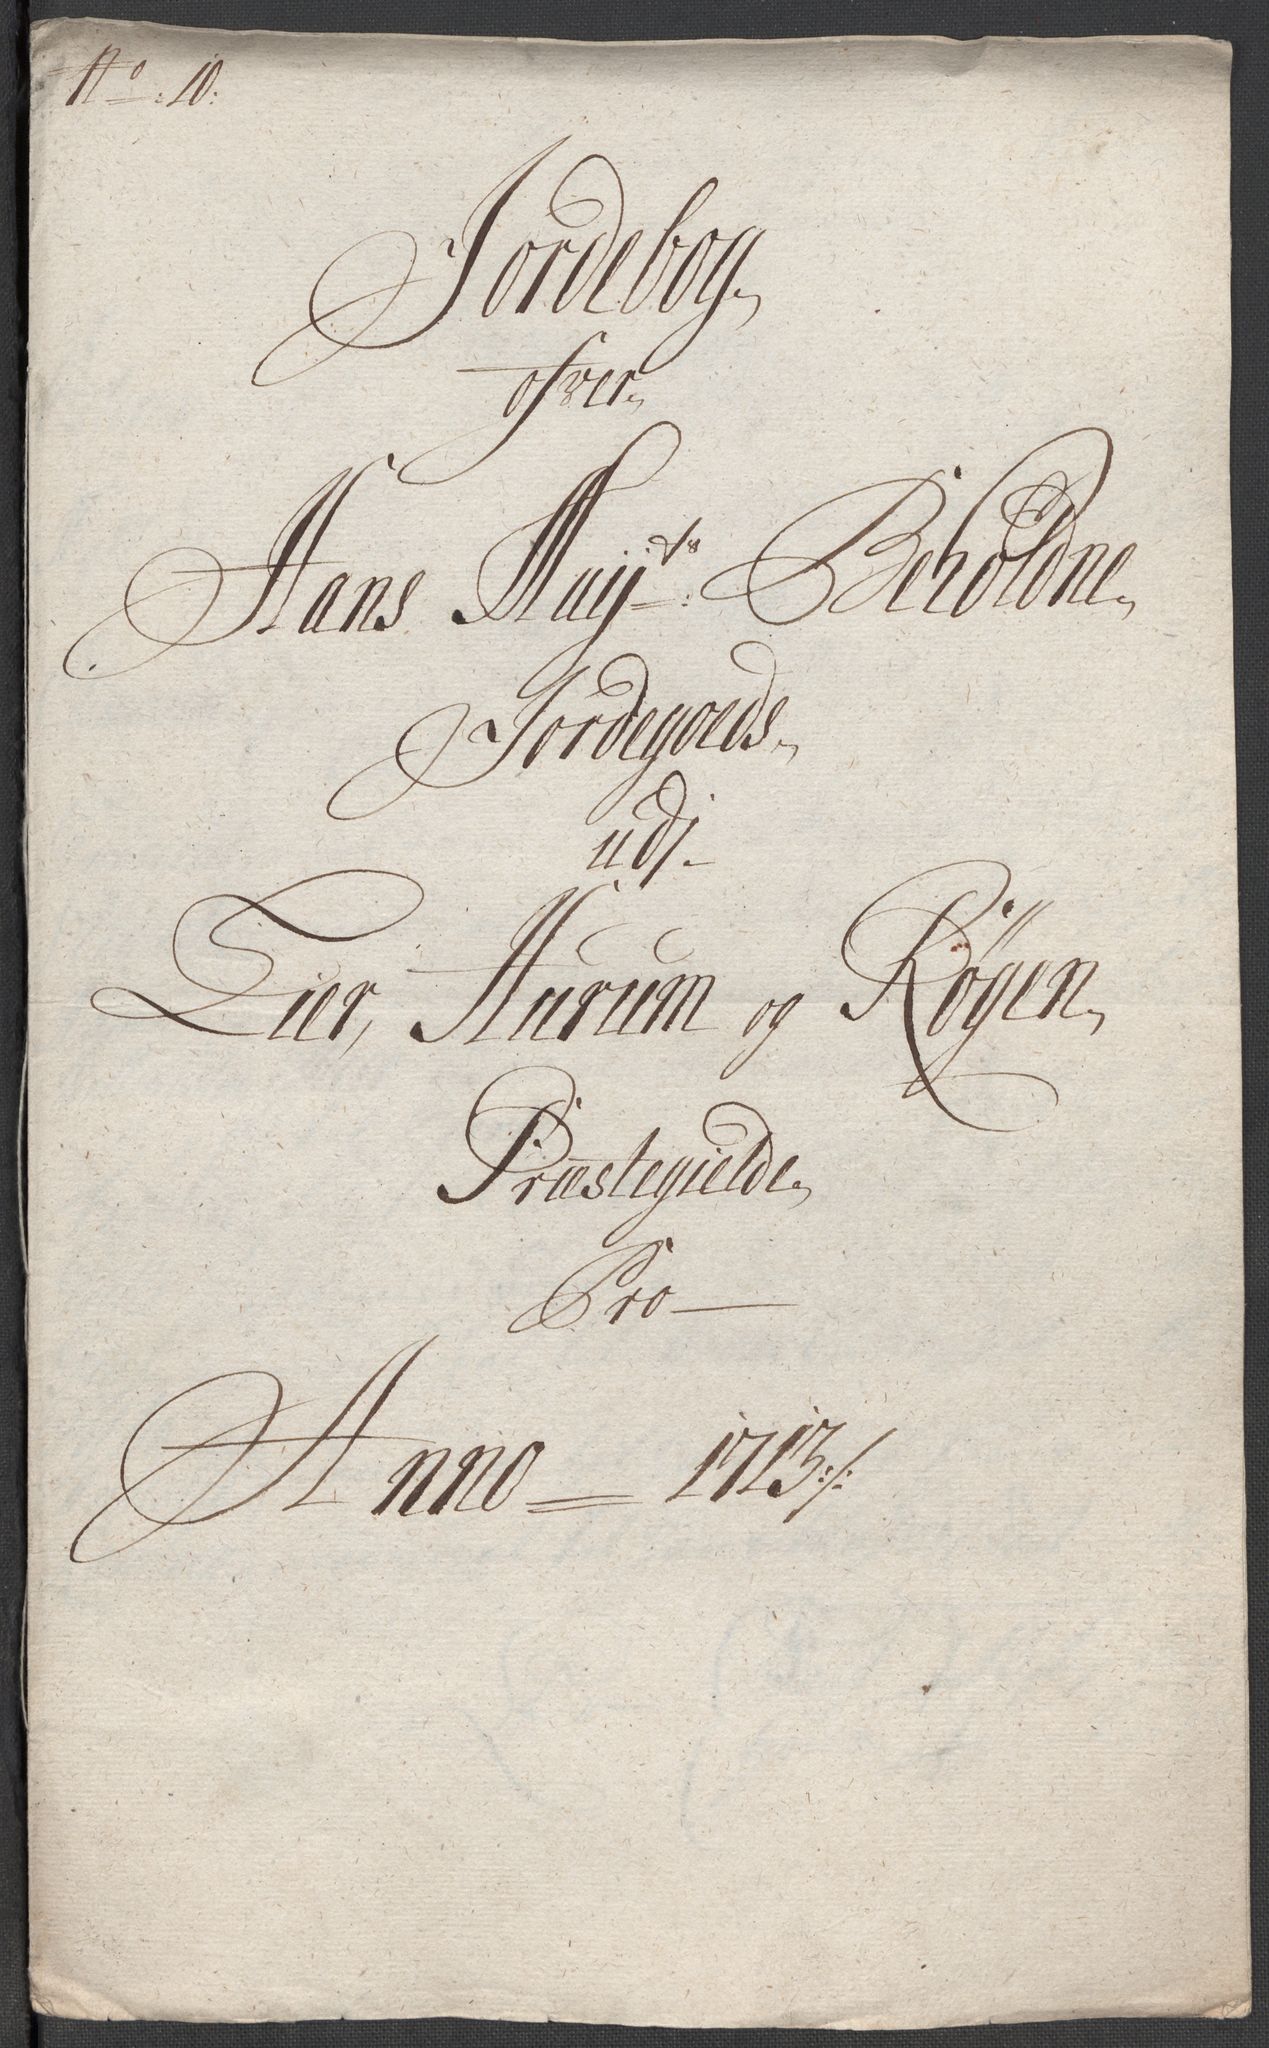 No: 10:
Jordebog
ofver
Hans Mayts: Beholdne
Jordegoeds
udj
Lier, Hurum og Røgen
Præstegielde
Pro
Anno 1713:/: